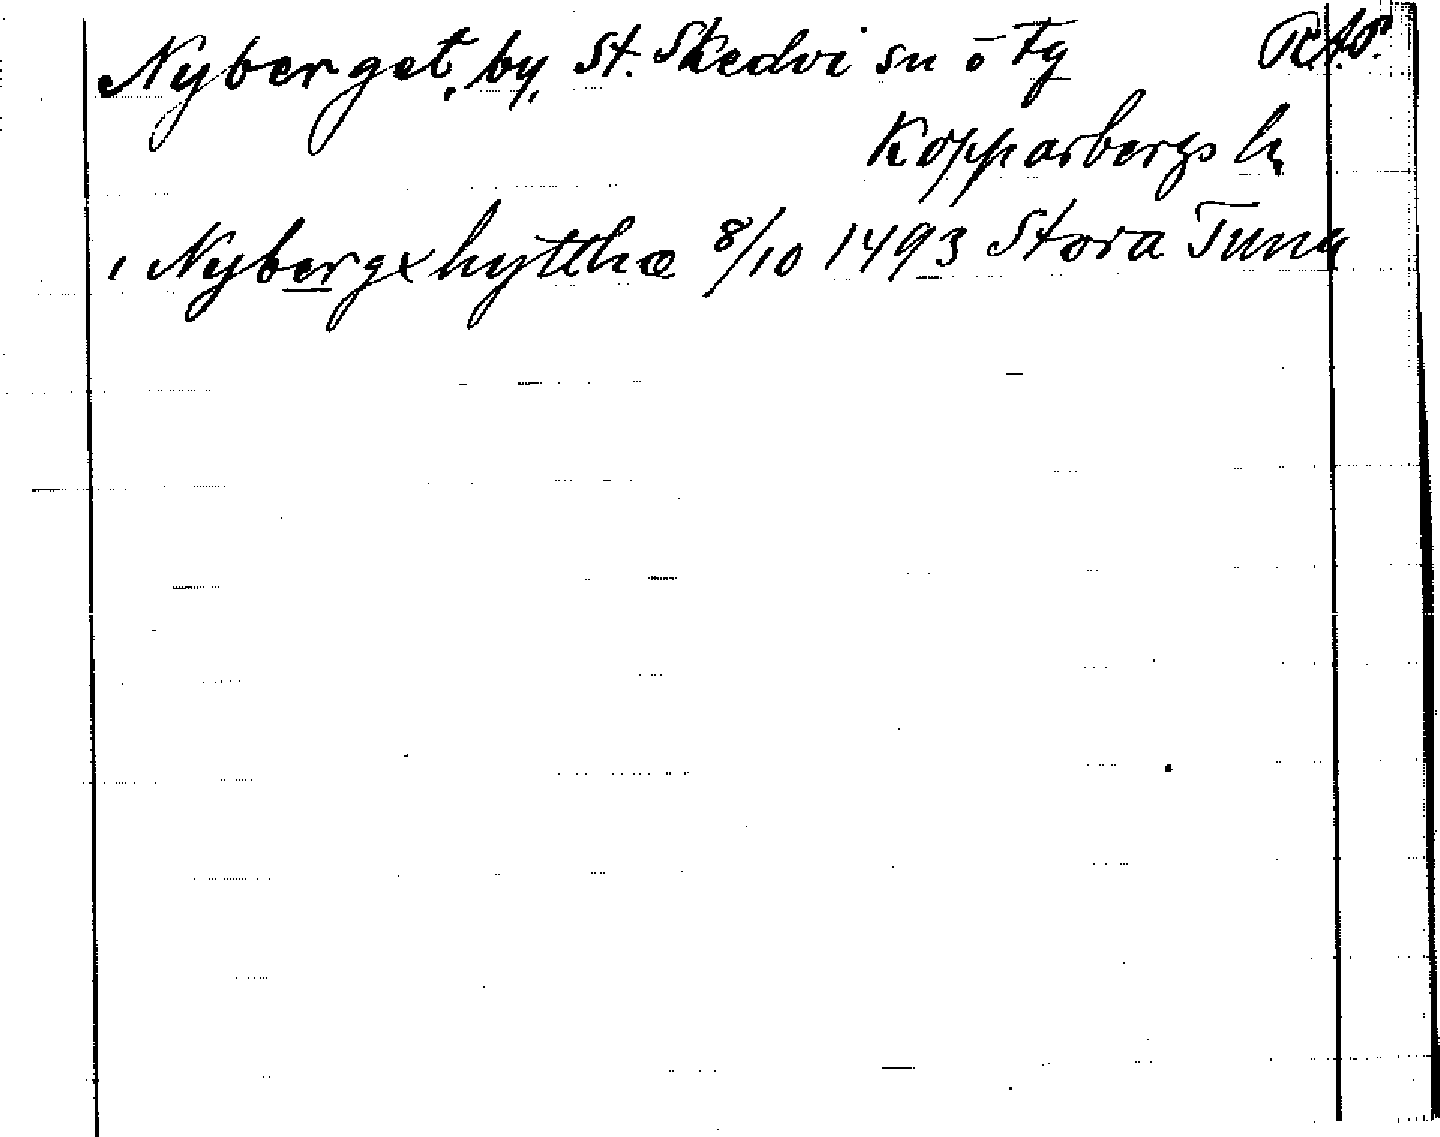 Nyberget, by, St. Skedvi sn ō Tg R.A.P.
Kopparbergs l.
i Nybergxhytthæ 8/10 1493 Stora Tuna